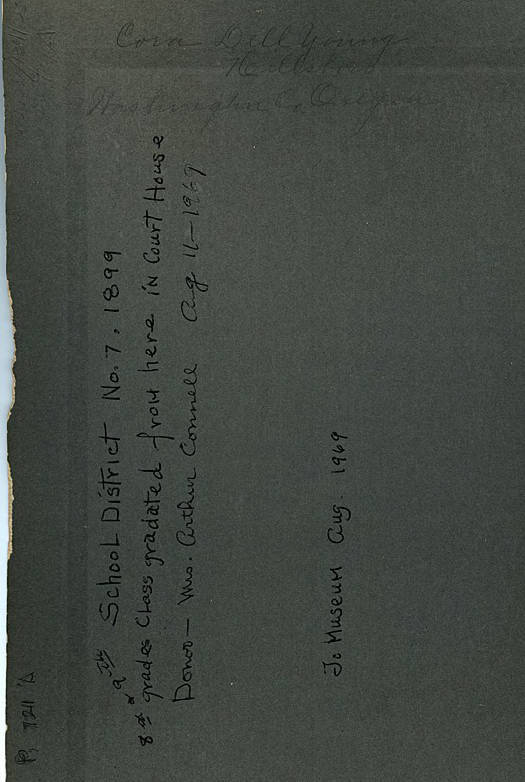 Cora Dell Young
Hillsboro
Washington Co, Oregon
School District No. 7, 1899
8th & 9th grades Class gradated from here in Court House
Donor - Mrs. Arthur Connell Aug 11-1969
To Museum Aug. 1969